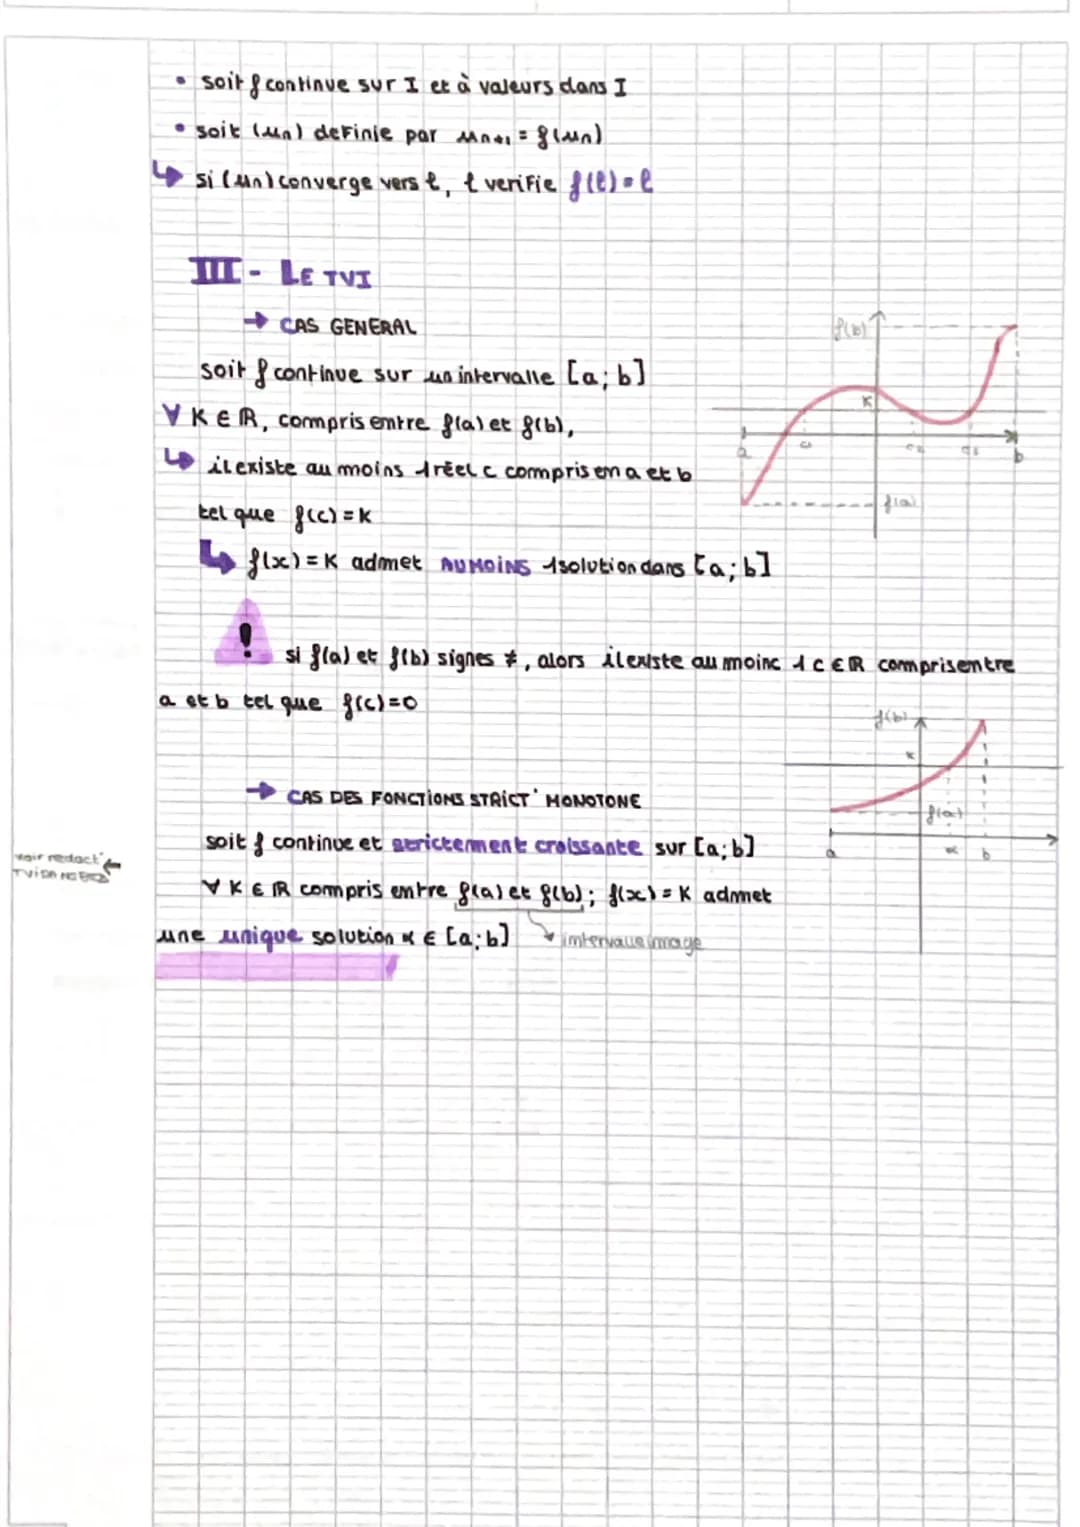 • soit f continue sur I et à valeurs dans I
• soit (un) definie par un+1 = f(un)
↳ si (un) converge vers l, l verifie f(l) = l
III - LE TVI
→ CAS GENERAL
soit f continue sur un intervalle [a; b]
∀ K ∈ ℝ, compris entre f(a) et f(b),
↳ il existe au moins 1 réel c compris en a et b
tel que f(c) = K
↳ f(x) = K admet AU MOINS 1 solution dans [a; b]
f(b)
K
a
b
f(a)
! si f(a) et f(b) signes ≠, alors il existe au moinc 1 c ∈ ℝ compris entre
a et b tel que f(c)=0
→ CAS DES FONCTIONS STRICT' MONOTONE
soit f continue et strictement croissante sur [a; b]
∀ K ∈ ℝ compris entre f(a) et f(b); f(x) = K admet
une unique solution α ∈ [a; b]
intervalle image
voir redact°
f(b)
K
f(a)
a
α
b